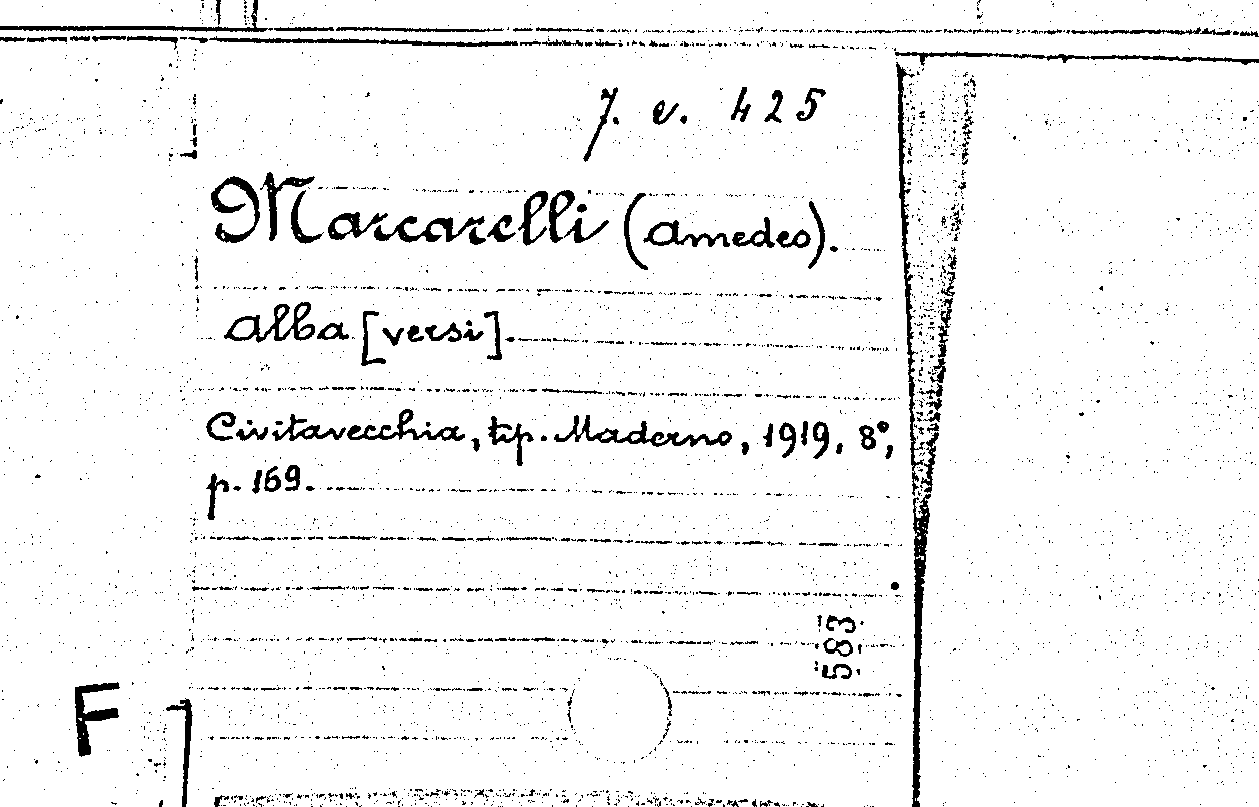 7. v. 425
Marcarelli (Amedeo).
Alba [versi].
Civitavecchia, tip. Maderno, 1919, 8°,
p. 169.
583
F